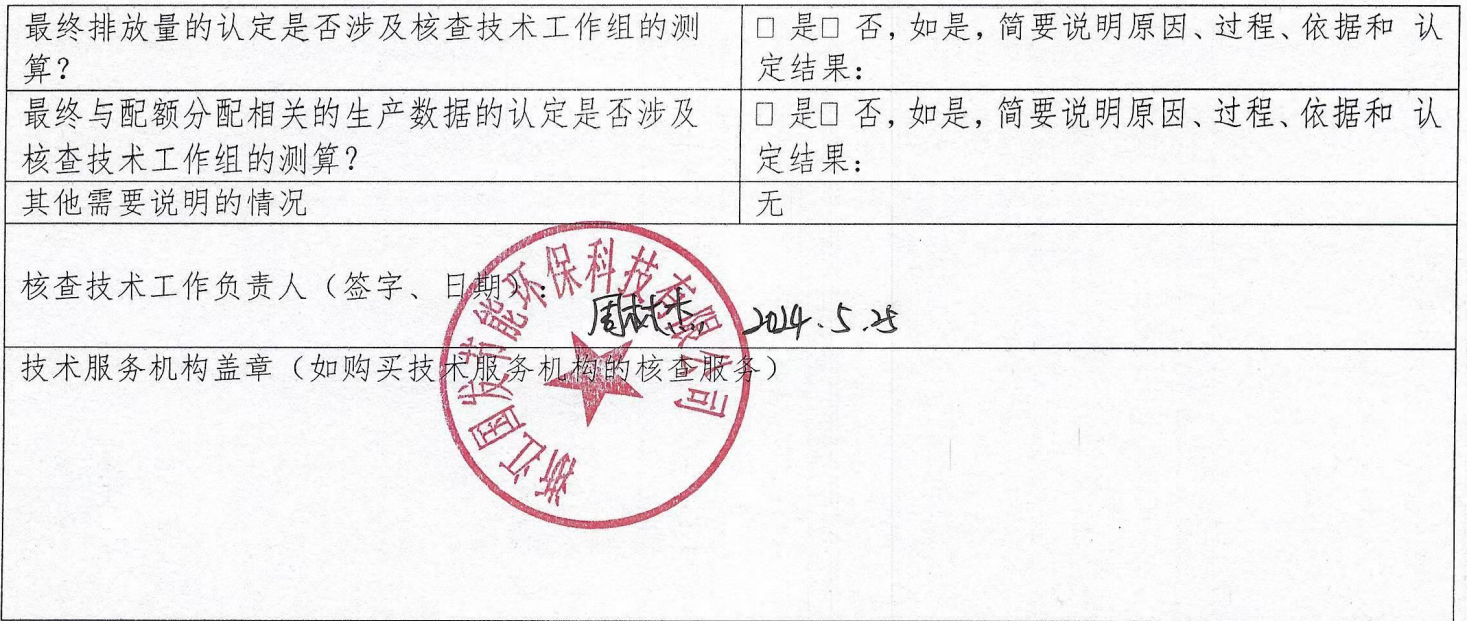 最终排放量的认定是否涉及核查技术工作组的测
算?
□ 是□ 否,如是,简要说明原因、过程、依据和 认
定结果:
最终与配额分配相关的生产数据的认定是否涉及
核查技术工作组的测算?
□ 是□ 否,如是,简要说明原因、过程、依据和 认
定结果:
其他需要说明的情况
无
核查技术工作负责人(签字、日期):
周 2024.5.25
技术服务机构盖章(如购买技术服务机构的核查服务)
浙江国发节能环保科技有限公司